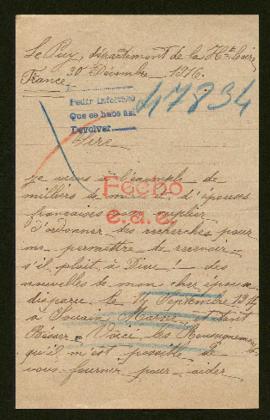 Le Puy, département de la Hte Loire
France 30 Décembre 1916.
Pedir informes
Que se haga así
Devolver
47834
Sire
Je viens à l'exemple de
milliers de mères et d'épouses
françaises vous supplier
Fecho
e.a.c.
d'ordonner des recherches pour
me permettre de recevoir
s'il plait à Dieu! des
nouvelles de mon cher époux
disparu le 14 Septembre 1914
à Souain Marne
Voici les Renseignements
qu'il m'est possible de
vous fournir pour aider